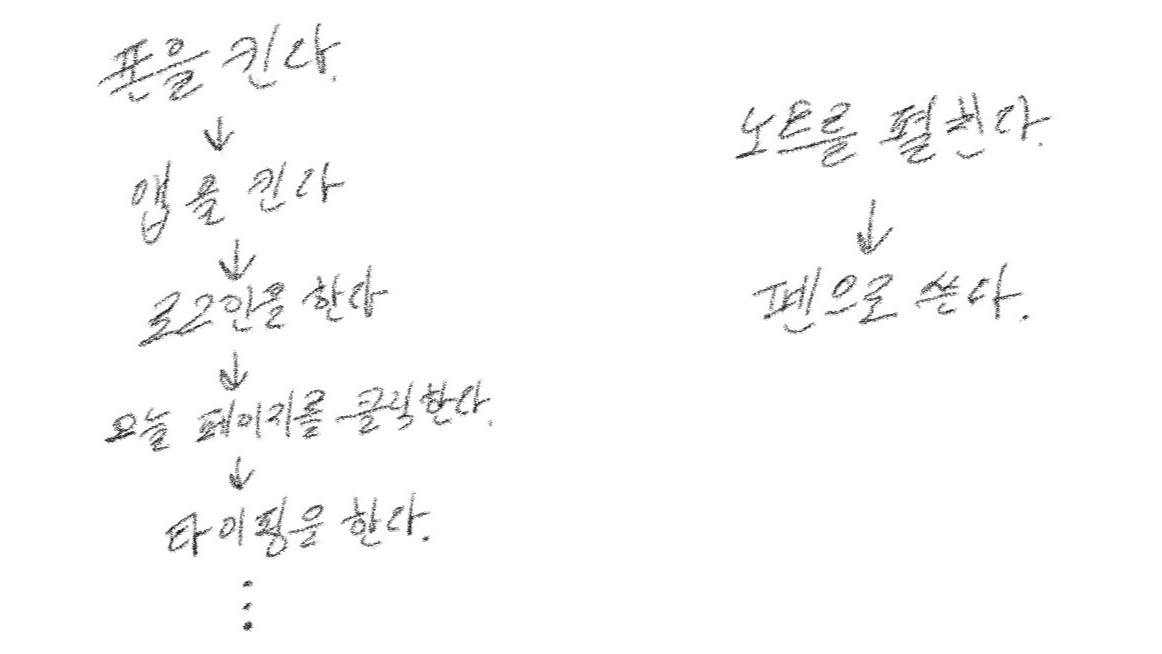 폰을 킨다.
↓
앱을 킨다
↓
로그인을 한다
↓
오늘 페이지를 클릭한다.
↓
타이핑을 한다.
⋮
노트를 펼친다.
↓
펜으로 쓴다.